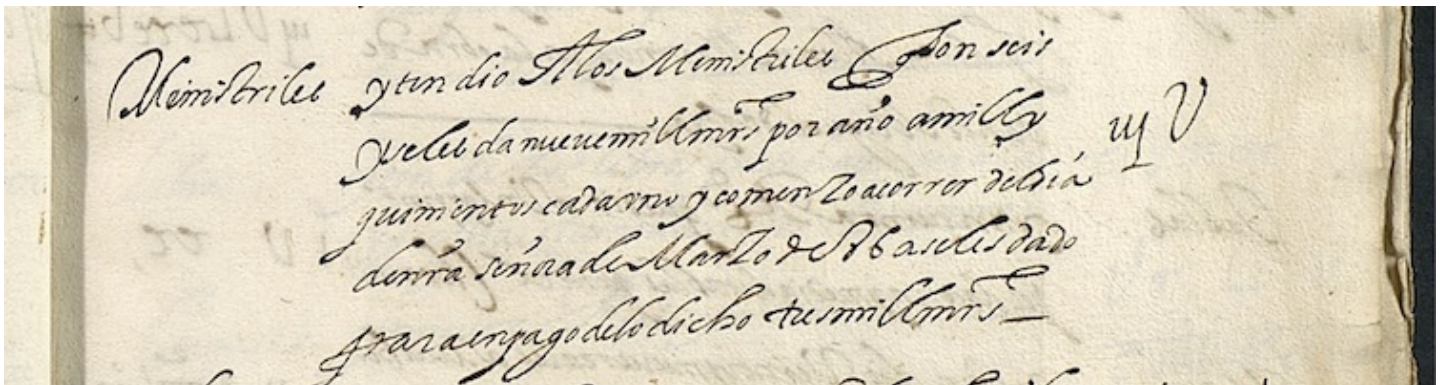 Menistriles yten dio A los Menistriles Son seis
yseles da nueve mill mrs por año a mill y iij U
quinientos cada vno y comenzo a correr del dia
de nra señora de Marzo de 86 aseles dado
para en pago de lo dicho tres mill mrs